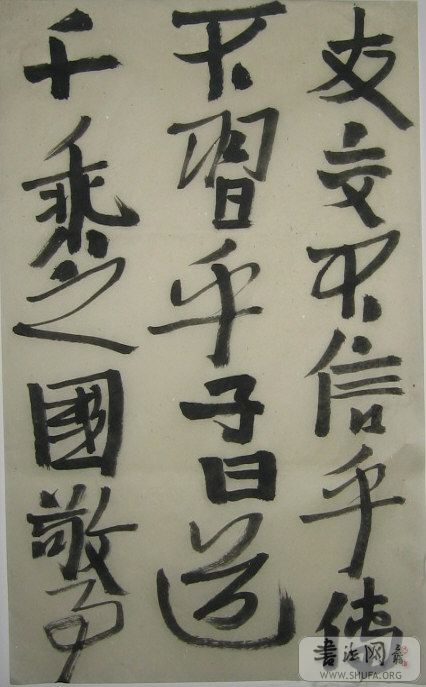 友交不信乎傳
不習乎子曰道
千乘之國敬事
書法网
WWW.SHUFA.ORG